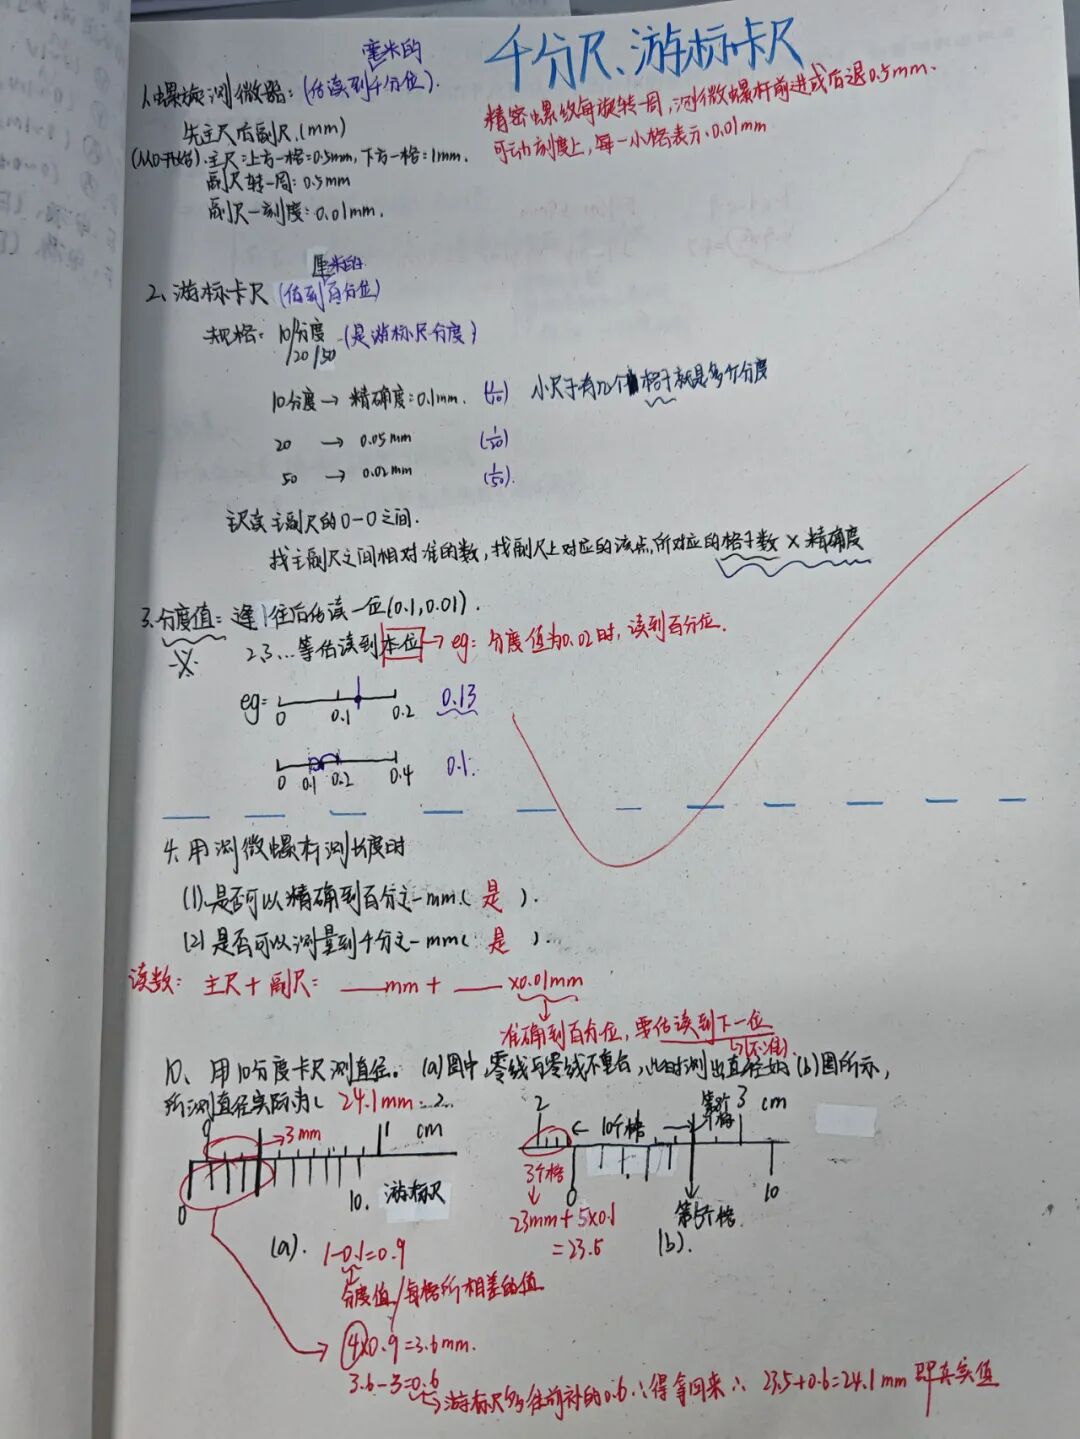 千分尺、游标卡尺
毫米的
1.螺旋测微器：(估读到千分位).
先主尺后副尺.(mm)
(从0开始).主尺：上方一格=0.5mm,下方一格=1mm.
副尺转一周：0.5mm
副尺一刻度：0.01mm.
精密螺纹每旋转一周,测微螺杆前进或后退0.5mm.
可动刻度上,每一小格表示0.01mm
厘米的
2、游标卡尺 (估到百分位)
规格：10分度 (是游标尺分度)
/20/50
10分度→精确度：0.1mm. (1/10) 小尺子有几个格子就是多少分度
20 → 0.05mm (1/20)
50 → 0.02mm (1/50).
主尺读主副尺的0-0之间.
找主副尺之间相对准的数,找副尺上对应的该点,所对应的格子数×精确度
3.分度值：逢1往后估读一位(0.1,0.01).
2.3...等估读到本位→eg：分度值为0.02时,读到百分位.
eg= 0 0.1 0.2 0.13
0 0.1 0.2 0.4 0.1.
4.用测微螺杆测长度时
(1).是否可以精确到百分之一mm(是).
(2)是否可以测量到千分之一mm(是).
读数：主尺+副尺：___mm+___×0.01mm
准确到百分位,要估读到下一位
↳(不准).
10、用10分度卡尺测直径。(a)图中,零线与零线不重合,此时测出直径如(b)图所示,
所测直径实际为(24.1mm).
0 →3mm 1 cm
0 10. 游标尺
(a).
2 ←10个格→ 3 cm
3个格 0 10
第5个格.
23mm+5×0.1
=23.5
(b).
1-0.1=0.9
分度值/每格所相差的值
4×0.9=3.6mm.
3.6-3=0.6
→游标尺多往前补的0.6∴得拿回来∴23.5+0.6=24.1mm即真实值